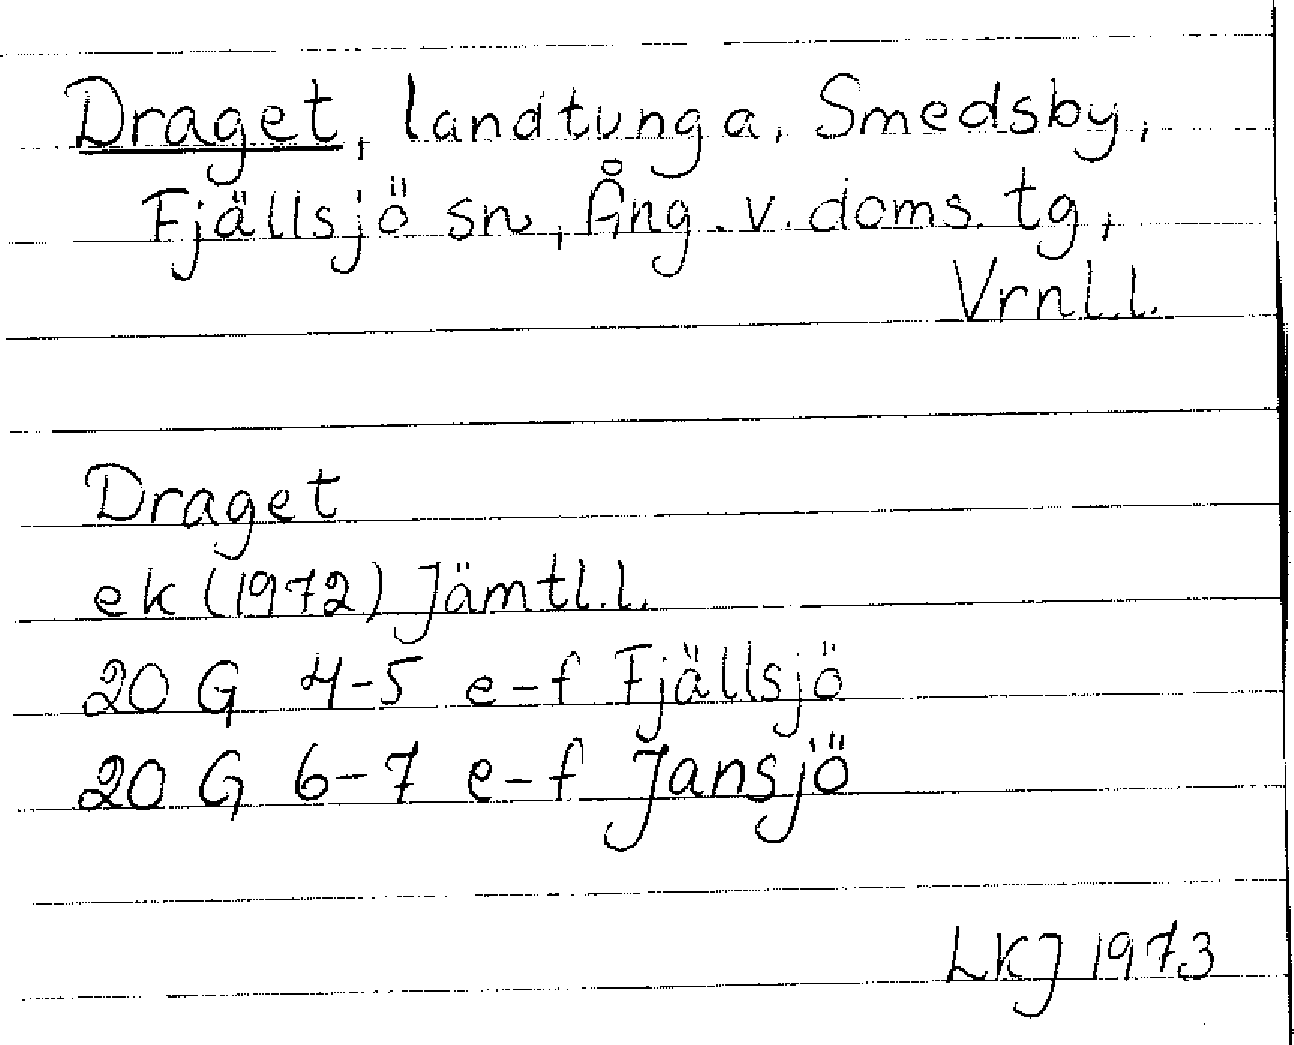 Draget, landtunga, Smedsby,
Fjällsjö sn, Ång. v. doms. tg,
Vrnl.l.
Draget
ek (1972) Jämtl.l.
20 G 4-5 e-f Fjällsjö
20 G 6-7 e-f Jansjö
LKJ 1973